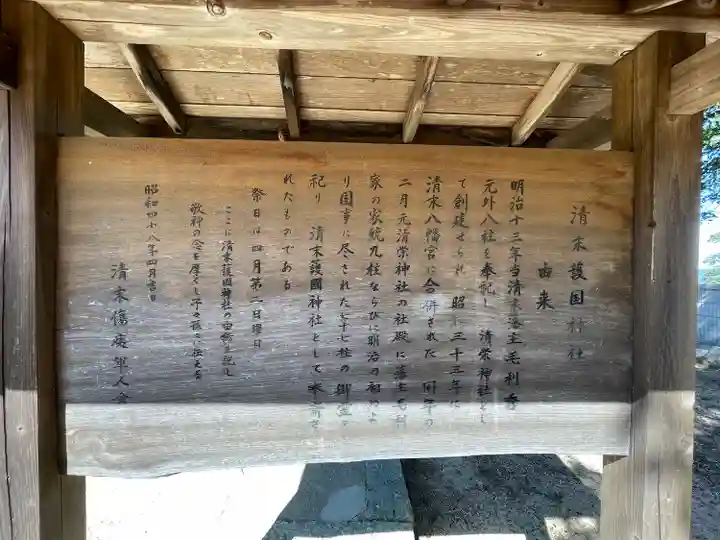 清末護国神社
由来
明治十三年当清末藩主毛利
元外八柱を奉祀し 清栄神社とし
て創建せられ 昭和三十三年に
清末八幡宮に合併された 同年の
二月元清栄神社の社殿に藩主毛利
家の家統九柱ならびに明治の初めよ
り国事に尽された 十七柱の御霊
祀り 清末護國神社として
れたものである
祭日は四月第二日曜日
ここに清末護国神社の由緒を記し
敬神の念を厚くし 子々孫々に伝える
昭和四十八年四月吉日
清末傷痍軍人会